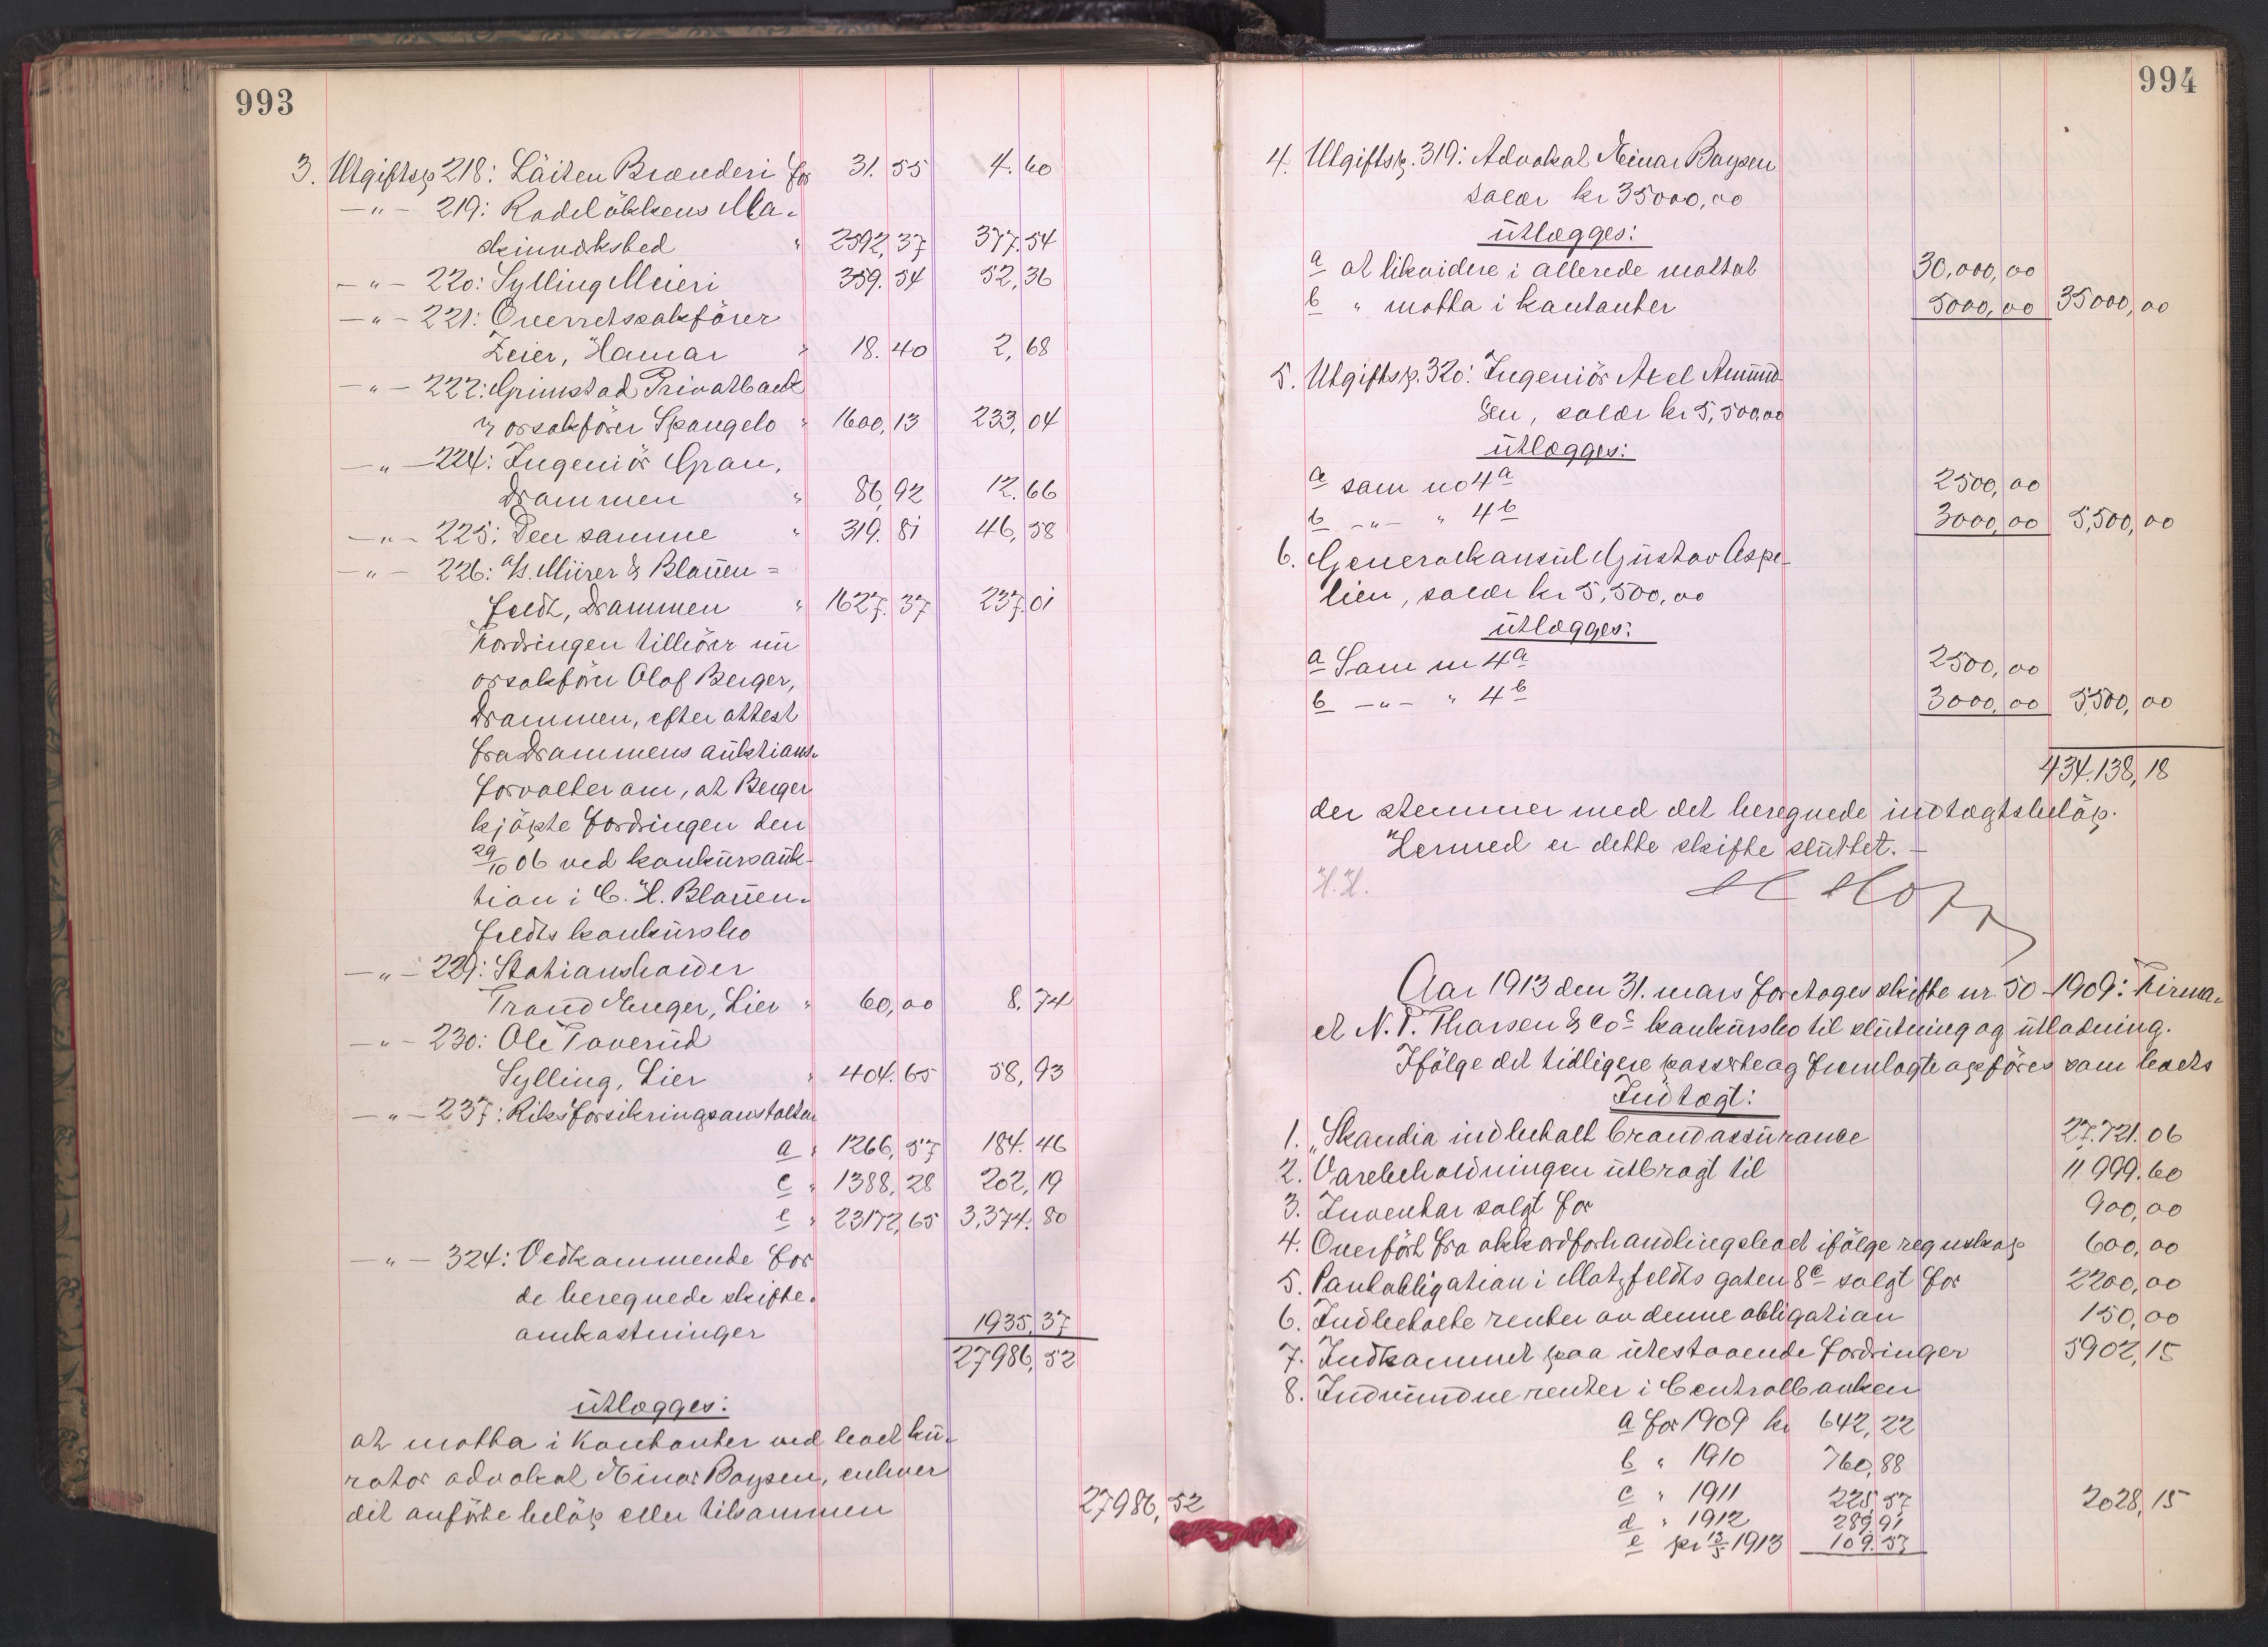 993
3. Utgiftsp 218: Löiten Brænderi for 31.55 4.60
—"— 219: Rodelökkens Ma-
skinværksted " 2592,37 377.54
—"— 220: Sylling Meieri 359.54 52,36
—"— 221: Overretssakförer
Zeier, Hamar " 18.40 2,68
—"— 222: Grimstad Privatbank
v/ orsakförer Spangelo " 1600,13 233,04
—"— 224: Ingeniör Gran,
Drammen " 86,92 12.66
—"— 225: Den samme " 319.81 46,58
—"— 226: A/S. Miirer & Blauen=
feldt, Drammen " 1627.37 237.01
Fordringen tilhörer nu
orsakförer Olaf Berger,
Drammen, efter attest
fra Drammens auktions-
forvalter om, at Berger
kjöpte fordringen den
29/10 06 ved konkursauk-
tion i C. H. Blauen-
feldts konkursbo
—"— 229: Stationsholder
Trond Enger, Lier " 60,00 8.74
—"— 230: Ole Toverud
Sylling, Lier " 404.65 58,93
—"— 237: Riksforsikringsanstalten
a " 1266,57 184.46
c " 1388,28 202,19
e " 23172,65 3,374.80
—"— 324: Vedkommende for
de beregnede skifte-
omkostninger 1935,37
27986,52
utlægges:
at motta i Kontanter ved boets ku-
rator advokat Einar Boysen, enhver
det anförte belöp eller tilsammen 27986,52
994
4. Utgiftsp. 319: Advokat Einar Boysen
salær kr 35000,00
utlægges:
a at likvidere i allerede mottat 30,000,00
b " motta i kontanter 5000,00 35000,00
5. Utgiftsp. 320: Ingeniör Axel Amund-
sen, salær kr 5,500,00
utlægges:
a som no 4a 2500,00
b —"— " 4b 3000,00 5,500,00
6. Generalkonsul Gustav Aspe-
lien, salær kr 5,500,00
utlægges:
a Som nr 4a 2500,00
b —"— " 4b 3000,00 5,500,00
434.138,18
der stemmer med det beregnede indtægtsbelöp.
Hermed er dette skifte sluttet. —
H. H.
Aar 1913 den 31. mars foretoges skifte nr. 50-1909: Firma-
et N. T. Thorsen & Co's konkursbo til slutning og utlodning.
Ifölge det tidligere passerte og fremlagte opföres som boets
Indtægt:
1. "Skandia indbetalt brandassurance 27.721.06
2. Varebeholdningen utbragt til 11999.60
3. Inventar solgt for 900,00
4. Overfört fra akkordforhandlingsboet ifölge regnskap 600,00
5. Pantobligation i Motzfeldts gaten 8c solgt for 2200,00
6. Indbetalte renter av denne obligation 150,00
7. Indkommet paa utestaaende fordringer 5902,15
8. Indvundne renter i Centralbanken
a for 1909 kr 642,22
b " 1910 760,88
c " 1911 225,57 2028,15
d " 1912 289,91
e pr 13/3 1913 109.57